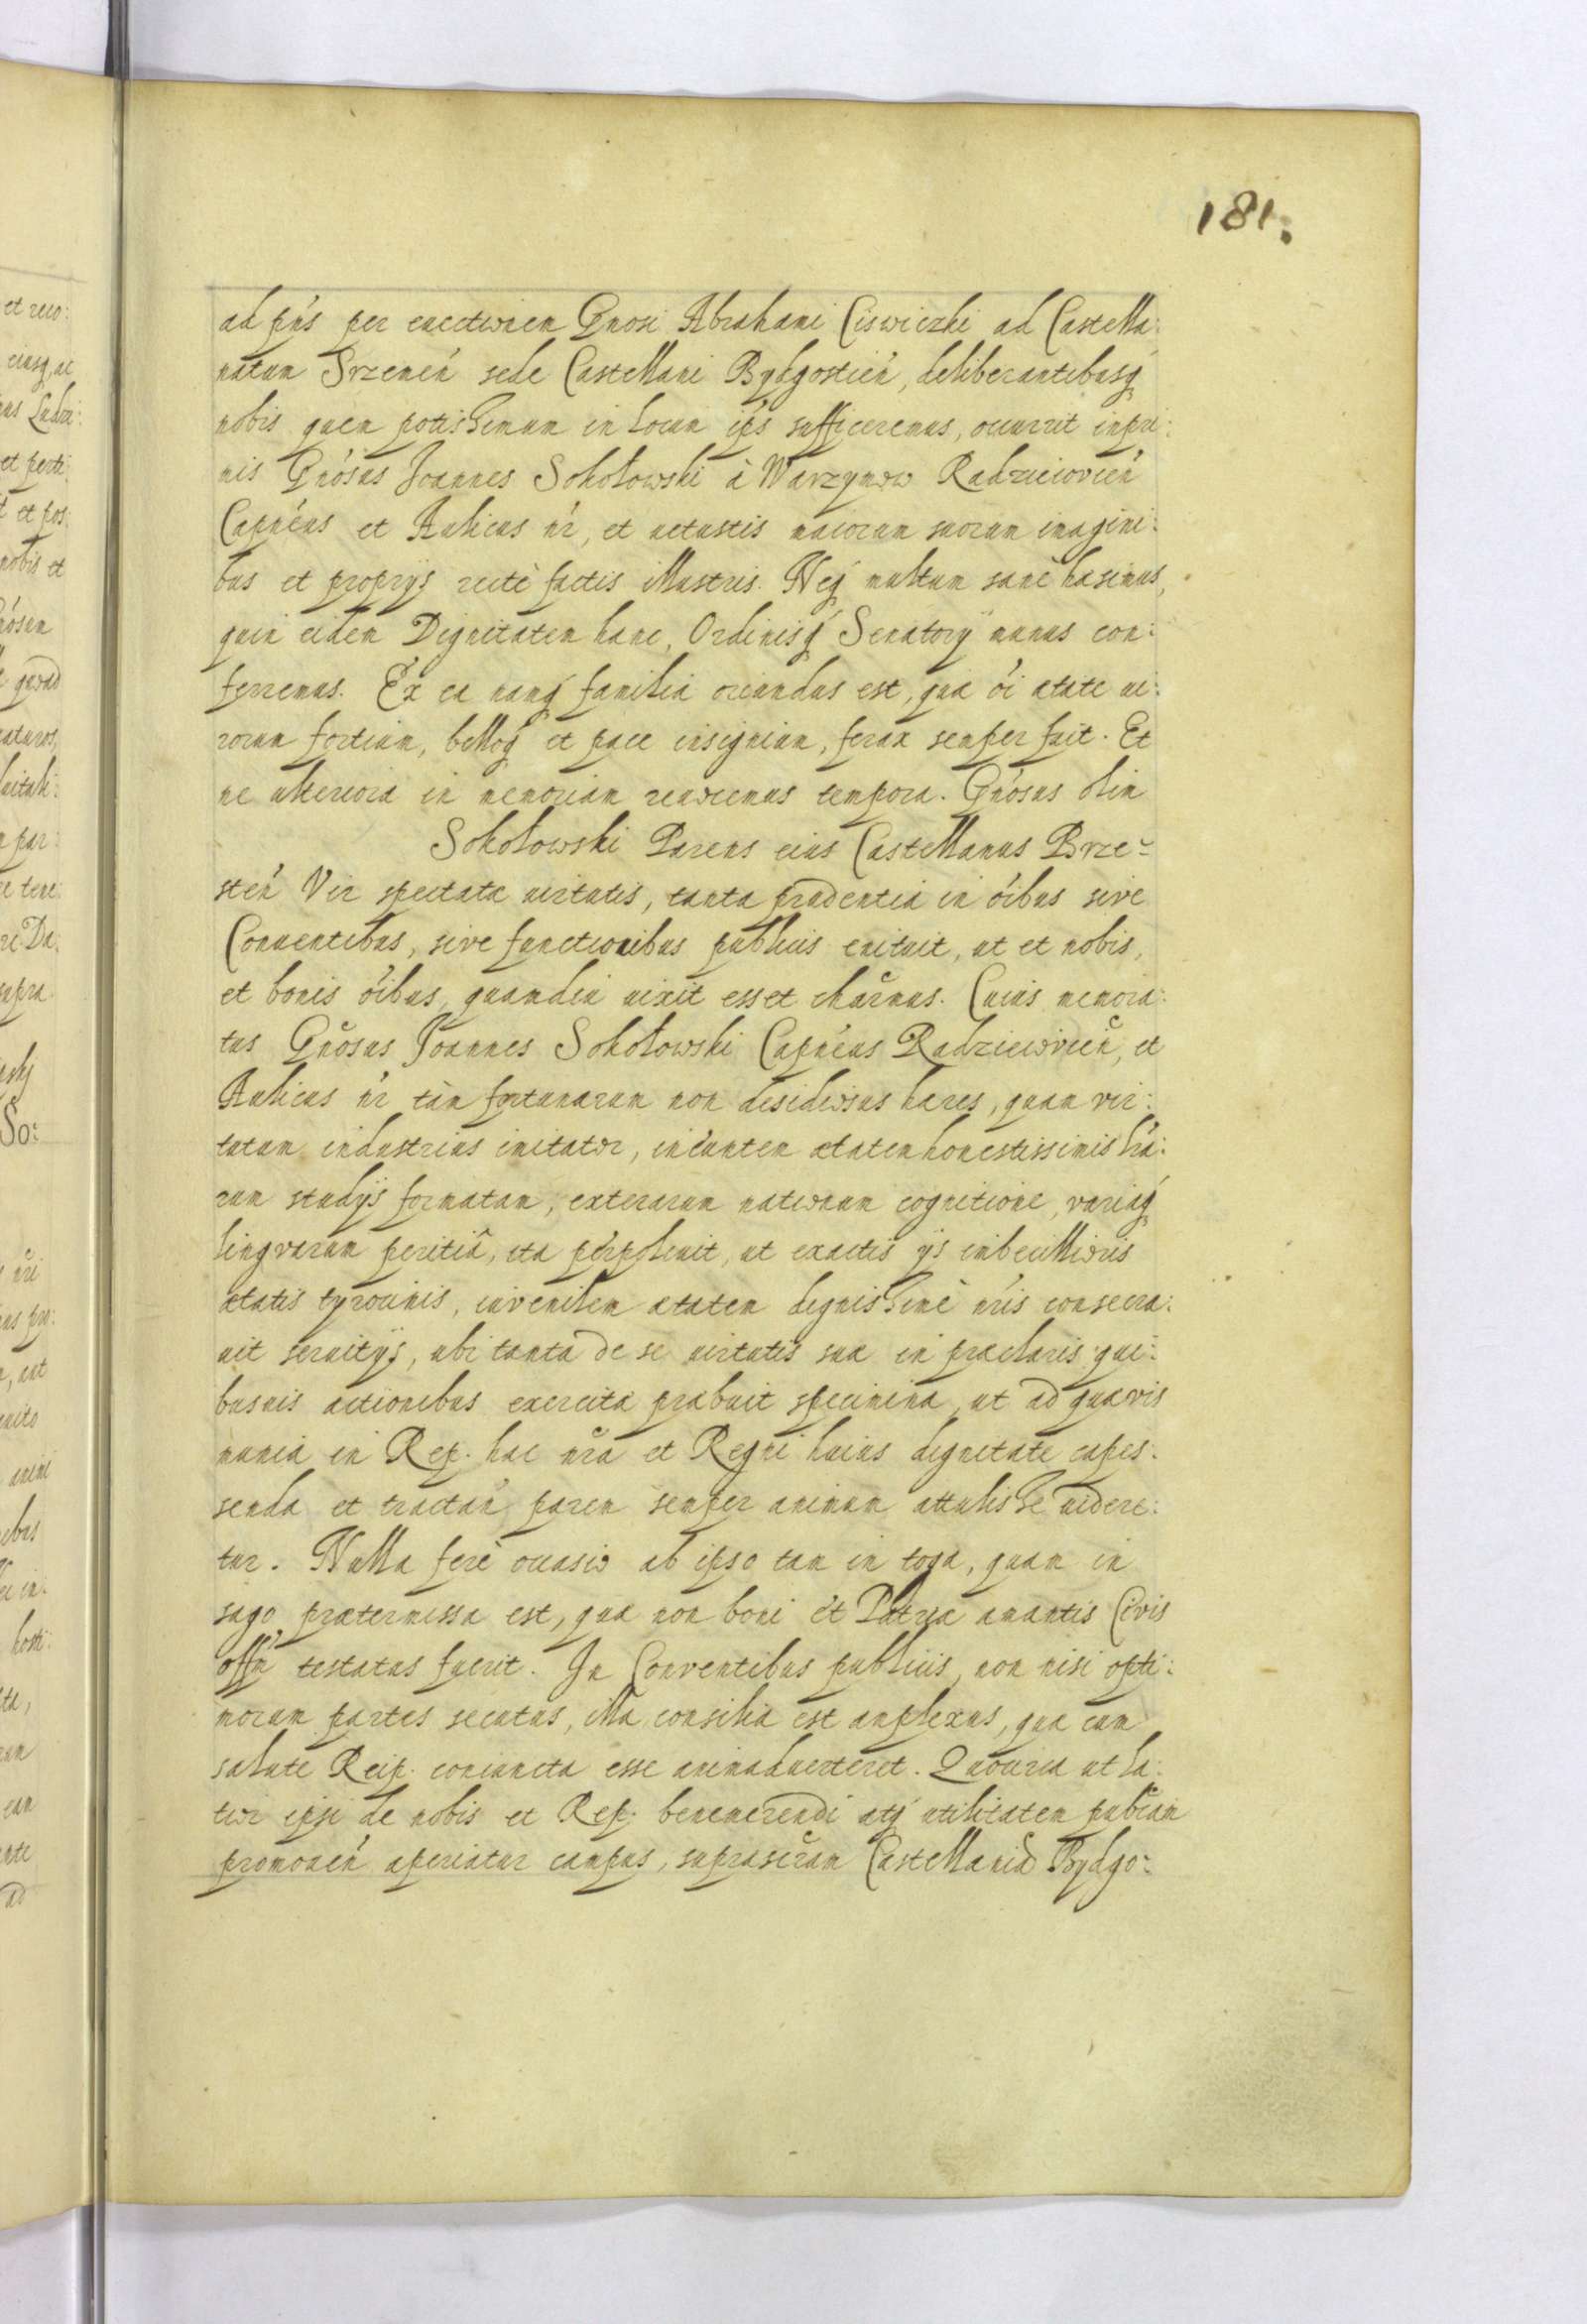 181.
ad pńs per euectionem Gnosi Abrahami Ciswiczki ad Castella:
natum Srzemeń sede Castellani Bydgostień, deliberantibusq́
nobis quem potissimum in locum ips sufficeremus, occurrit inpri:
mis Gnósus Joannes Sokołowski à Warzymow Radzieiovień
Capnéus et Aulicus ńr, et uetustis maiorum suorum imagini:
bus et proprijs rectè factis illustris. Neq́ multum sanè hasimus,
quin eidem Dignitatem hanc, Ordinisq́ Senatorÿ munus con:
ferremus. Ex ea namq́ familia oriundus est, qua ói atate ui:
rorum fortium, belloq́ et pace insignium, ferax semper fuit. Et
ne ulteriora in memoriam reuocemus tempora. Gnósus olim
Sokołowski Parens eius Castellanus Brze:
steń Vir spectatæ uirtutis, tanta prudentia in óibus sive
Conuentibus, sive functionibus publicis enituit, ut et nobis,
et bonis óibus, quamdiu uixit esset chařmus. Cuius memora:
tus Gnósus Joannes Sokołowski Capnéus Radzieiovień, et
Aulicus ńr tàm fortunarum non desidiosus hares, quam vir:
tutum industrius imitator, ineuntem ætatem honestissimis lŕa:
rum studijs formatam, exterarum nationum cognitione, variaq́
lingvarum peritiâ, ita perpoliuit, ut exactis ijs imbecillioris
ætatis tyrocinis, iuvenilem atatem dignissimè nŕis consecra:
uit seruitÿs, ubi tanta de se uirtutis sua in præclaris qui:
busuis actionibus exercita prabuit specimina, ut ad quavis
munia in Rep. hac nŕa et Regni huius dignitate capes:
senda et tractań parem semper animum attulisse uidere:
tur. Nulla ferè occasio ab ipso tam in toga, quam in
sago prætermissa est, qua non boni et Patriæ amantis Civis
offń testatus fuerit. In Conventibus publicis, non nisi opti:
morum partes secutus, illa consilia est amplexus, qua cum
salute Reip. coniuncta esse animaduerteret. Quocirca ut la:
tior ipsi de nobis et Rep. benemerendi atq́ utilitatem pubĉam
promoueń aperiatur campus, suprascŕam Castellaniã Bydgo: